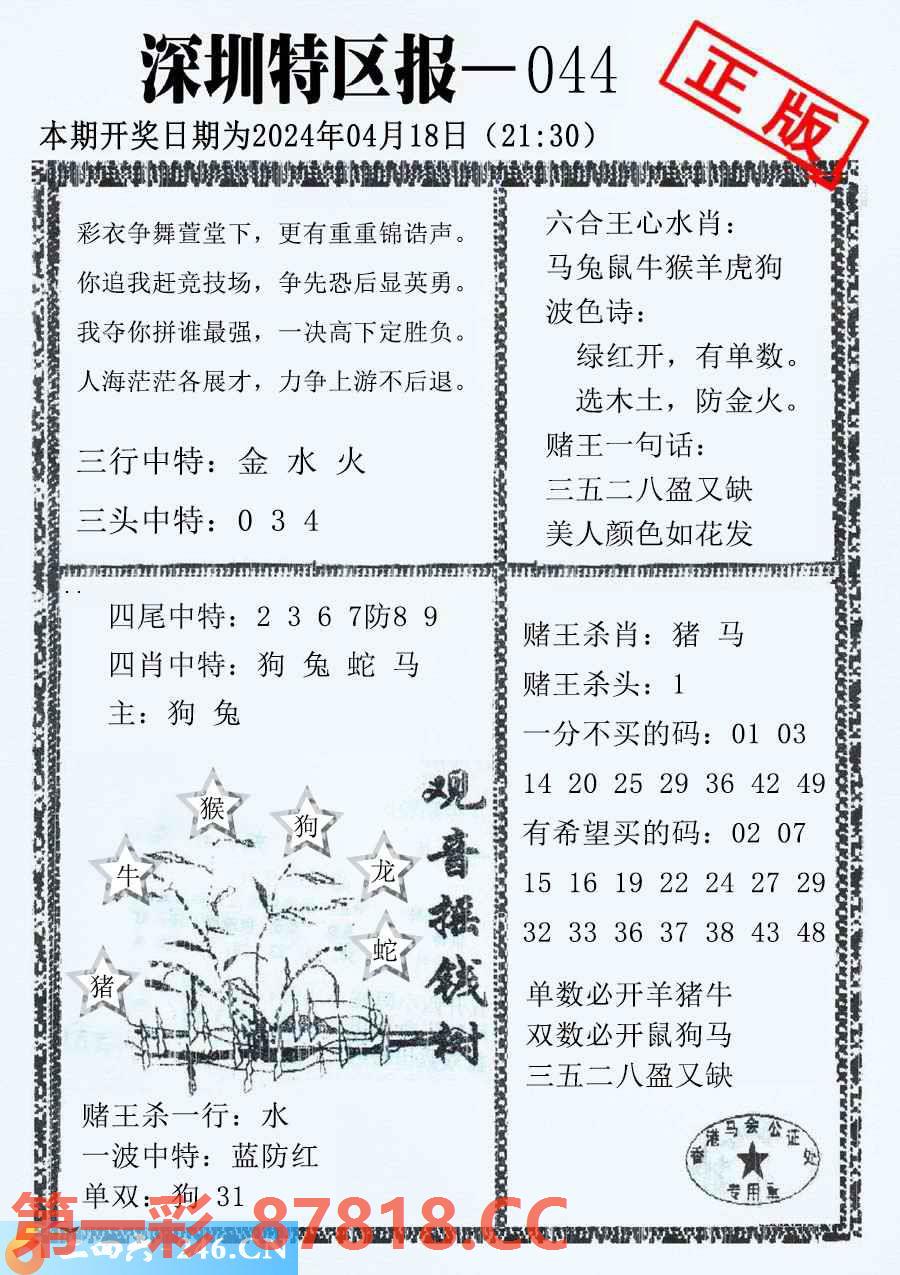 深圳特区报—044
正版
本期开奖日期为2024年04月18日（21:30）
彩衣争舞萱堂下，更有重重锦诰声。
你追我赶竞技场，争先恐后显英勇。
我夺你拼谁最强，一决高下定胜负。
人海茫茫各展才，力争上游不后退。
三行中特：金 水 火
三头中特：0 3 4
六合王心水肖：
马兔鼠牛猴羊虎狗
波色诗：
绿红开，有单数。
选木土，防金火。
赌王一句话：
三五二八盈又缺
美人颜色如花发
四尾中特：2 3 6 7防8 9
四肖中特：狗 兔 蛇 马
主：狗 兔
猴
狗
牛
龙
蛇
猪
观音摇钱树
赌王杀一行：水
一波中特：蓝防红
单双：狗 31
赌王杀肖：猪 马
赌王杀头：1
一分不买的码：01 03
14 20 25 29 36 42 49
有希望买的码：02 07
15 16 19 22 24 27 29
32 33 36 37 38 43 48
单数必开羊猪牛
双数必开鼠狗马
三五二八盈又缺
香港马会公证处
专用章
第一彩 87818.CC
246.CN